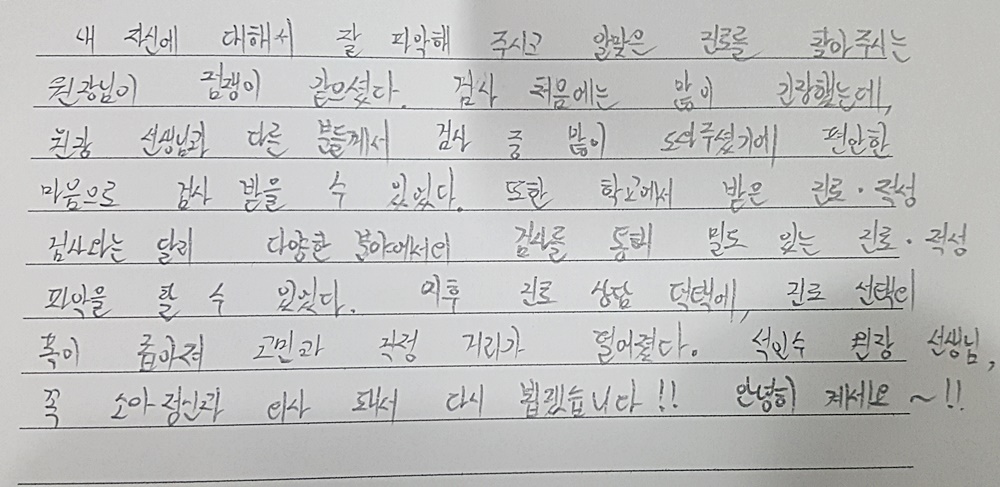 내 자신에 대해서 잘 파악해 주시고 알맞은 진로를 찾아주시는
원장님이 점쟁이 같으셨다. 검사 처음에는 많이 긴장했는데,
원장 선생님과 다른 분들께서 검사 중 많이 도와주셨기에 편안한
마음으로 검사 받을 수 있었다. 또한 학교에서 받은 진로·적성
검사와는 달리 다양한 분야에서의 검사를 통해 밀도 있는 진로·적성
파악을 할 수 있었다. 이후 진로 상담 덕택에, 진로 선택의
폭이 좁아져 고민과 걱정 거리가 덜어졌다. 석인수 원장 선생님,
꼭 소아정신과 의사 돼서 다시 뵙겠습니다!! 안녕히 계세요~!!